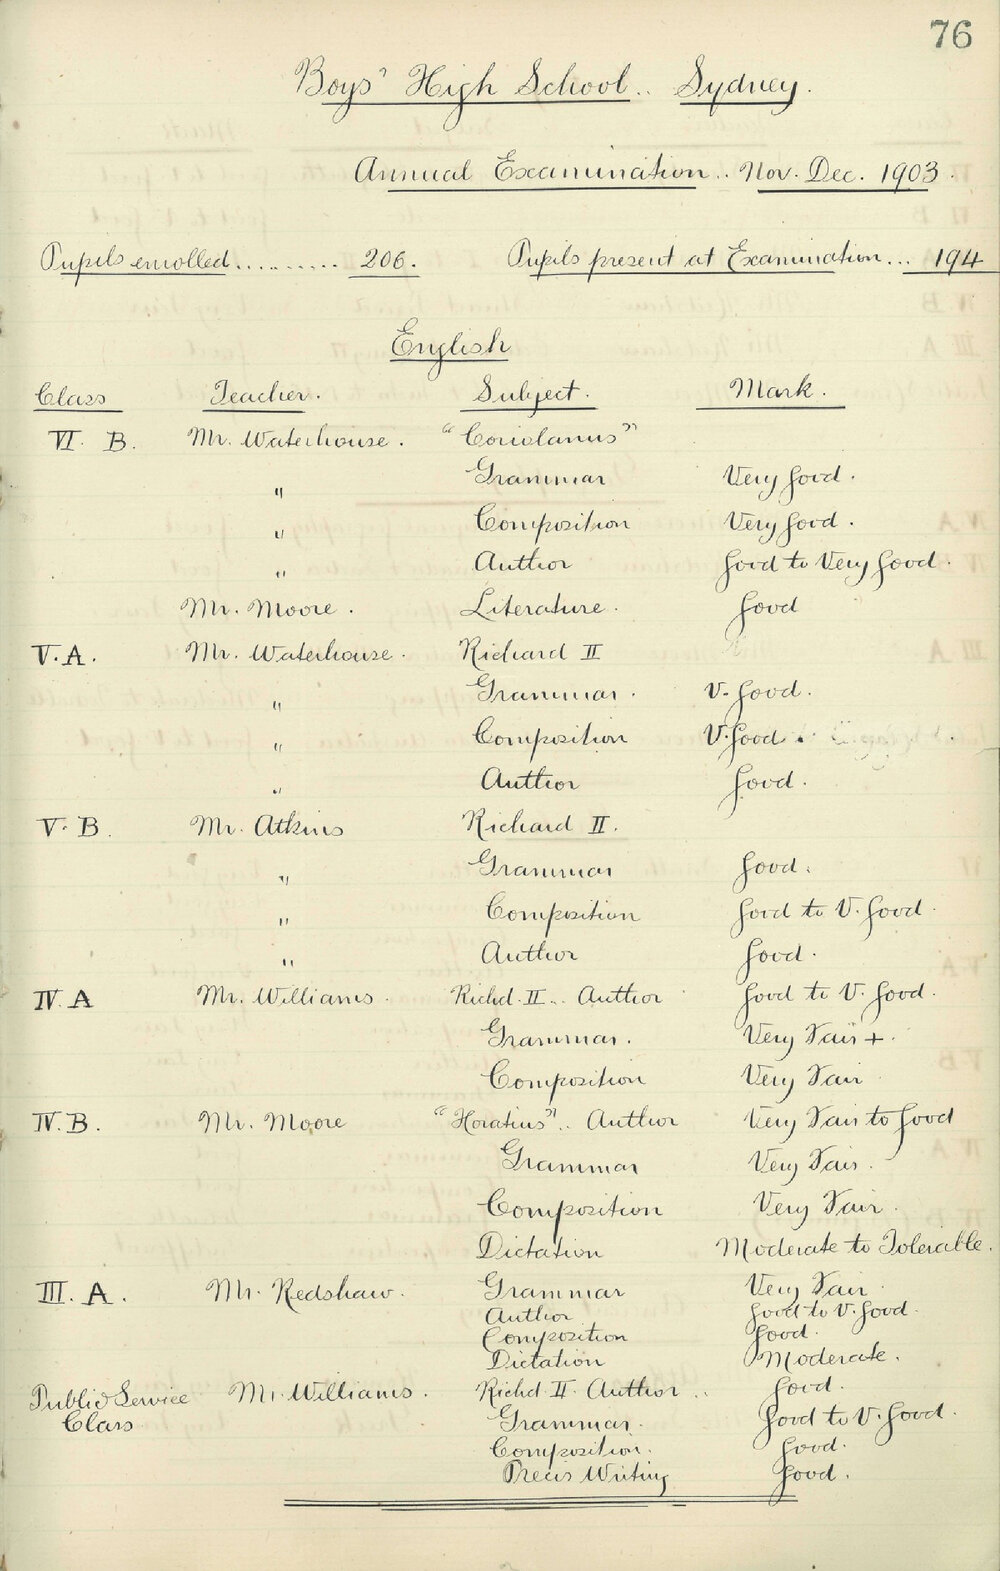 76
Boys' High School.. Sydney.
Annual Examination.. Nov. Dec. 1903.
Pupils enrolled.......... 206. Pupils present at Examination... 194
English
Class Teacher. Subject. Mark.
VI. B. Mr. Waterhouse. "Coriolanus"
" Grammar Very Good.
" Composition Very Good.
" Author Good to Very Good.
Mr. Moore. Literature. Good
V.A. Mr. Waterhouse. Richard II
" Grammar. V. Good.
" Composition V. Good.
" Author Good.
V. B. Mr. Atkins Richard II.
" Grammar Good.
" Composition Good to V. Good.
" Author Good.
IV. A Mr. Williams. Richd. II.. Author Good to V. Good.
Grammar. Very Fair +.
Composition Very Fair
IV. B. Mr. Moore "Horatius".. Author Very Fair to Good
Grammar Very Fair.
Composition Very Fair.
Dictation Moderate to Tolerable.
III. A. Mr. Redshaw. Grammar Very Fair
Author Good to V. Good.
Composition Good.
Dictation Moderate.
Public Service Mr. Williams. Richd II. Author.. Good.
Class Grammar. Good to V. Good.
Composition. Good.
Precis Writing Good.